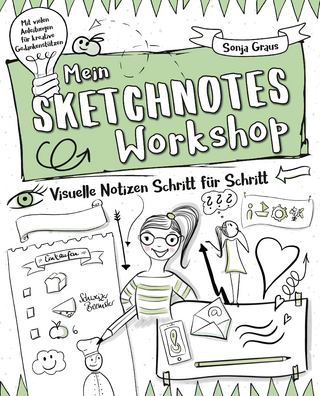 Mit vielen
Anleitungen
für kreative
Gedankenstützen
Sonja Graus
Mein
SKETCHNOTES
Workshop
Visuelle Notizen Schritt für Schritt
???
Einkaufen
6